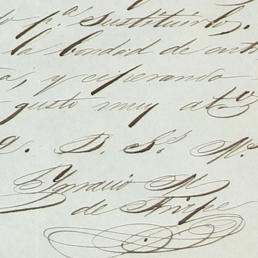 o p.ª sustituirlo.
la bondad de
a, y esperando
gusto muy at.º
q. B. S. M.
Ygnacio M
de